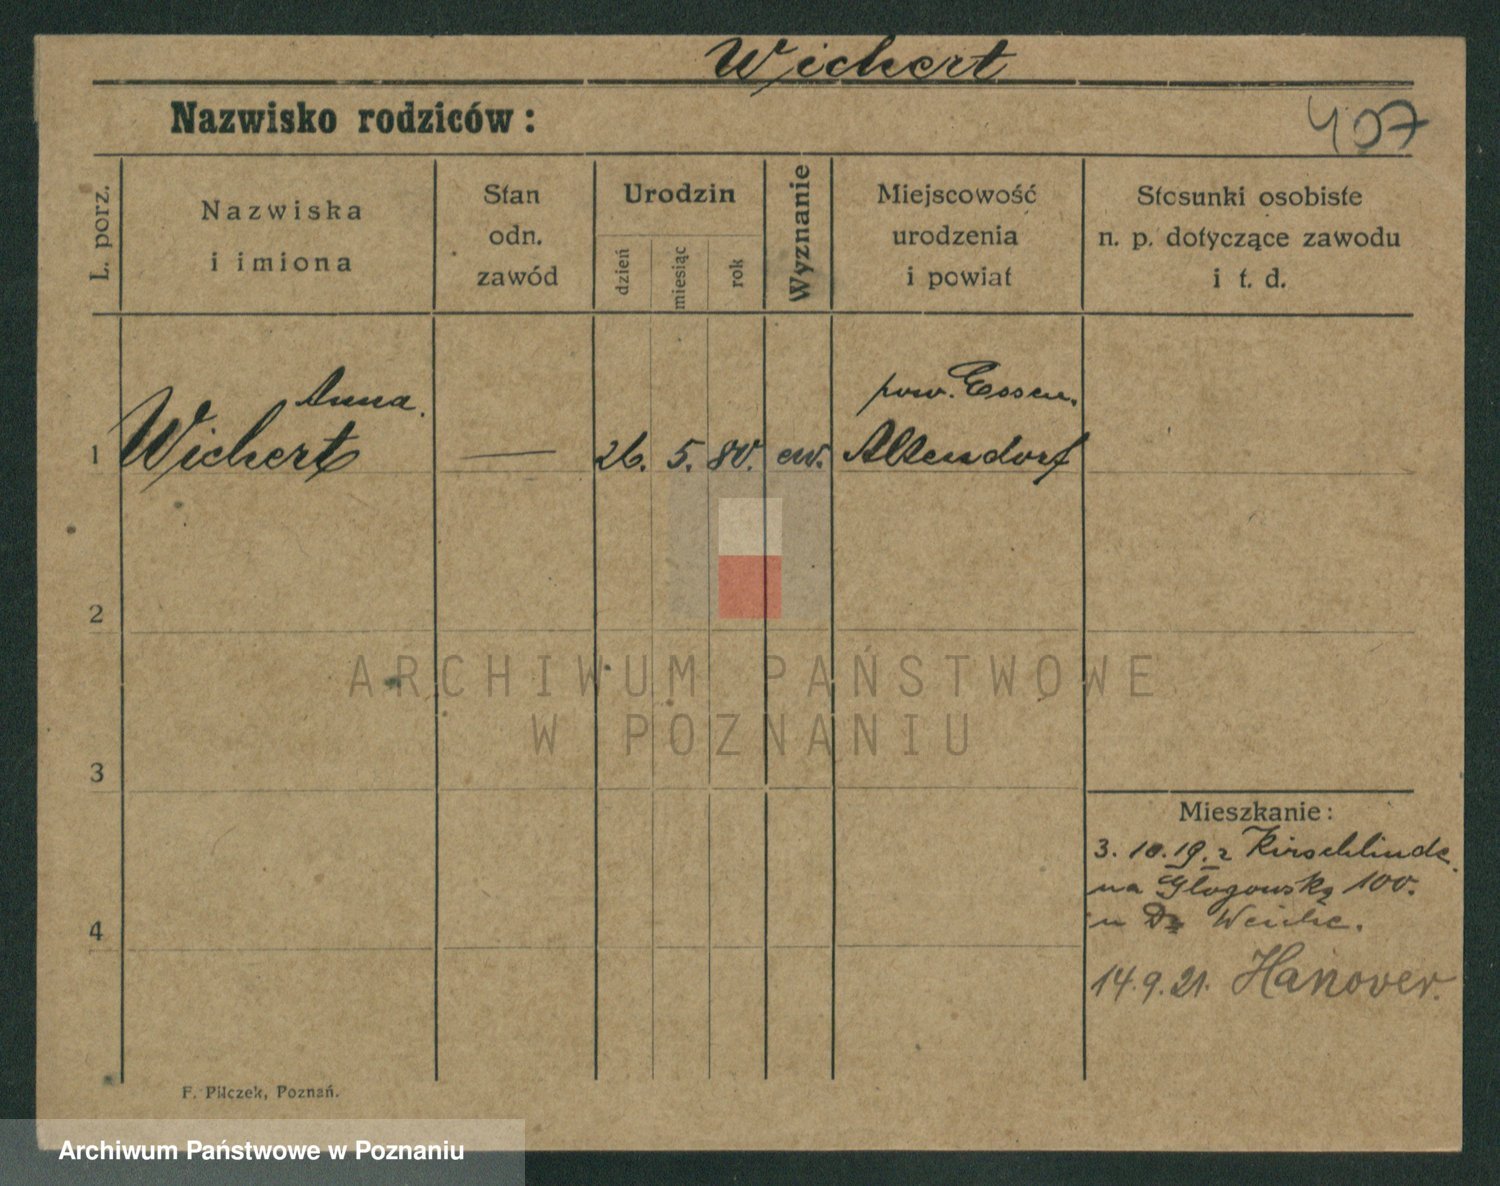 Wichert
Nazwisko rodziców:
407
L. porz.
Nazwiska
i imiona
Stan
odn.
zawód
Urodzin
dzień
miesiąc
rok
Wyznanie
Miejscowość
urodzenia
i powiat
Stosunki osobiste
n. p. dotyczące zawodu
i t. d.
Anna.
pow. Essen.
1 Wichert — 26. 5. 80. ew. Altendorf
2
ARCHIWUM PAŃSTWOWE
W POZNANIU
3
Mieszkanie:
3. 10. 19. z Kirschlinde.
na Głogowską 100.
u Dr
4
14.9.21. Hanover.
F. Pilczek, Poznań.
Archiwum Państwowe w Poznaniu